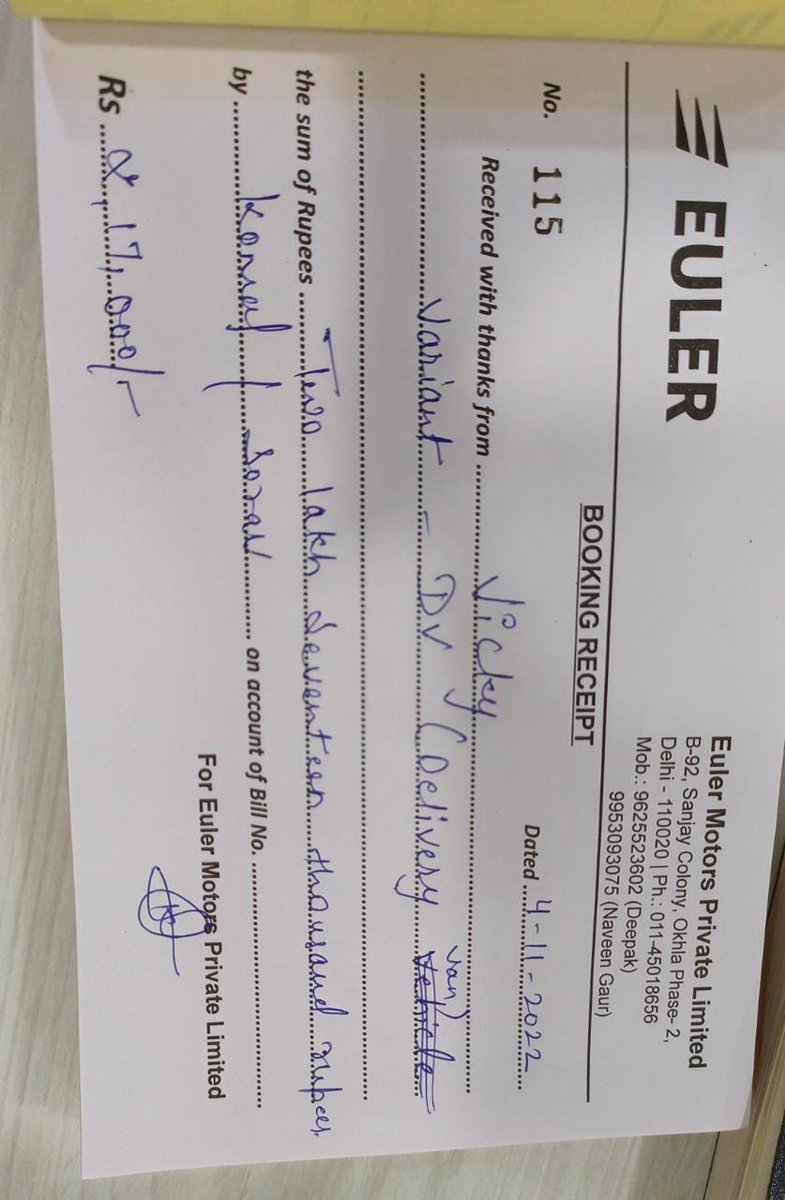 EULER
Euler Motors Private Limited
B-92, Sanjay Colony, Okhla Phase- 2,
Delhi - 110020 | Ph.: 011-45018656
Mob.: 9625523602 (Deepak)
9953093075 (Naveen Gaur)
BOOKING RECEIPT
No. 115 Dated 4-11-2022
Received with thanks from Vicky
Variant - DV (Delivery van)
the sum of Rupees Two lakh Seventeen thousand rupees
by on account of Bill No.
Rs 2,17,000/-
For Euler Motors Private Limited